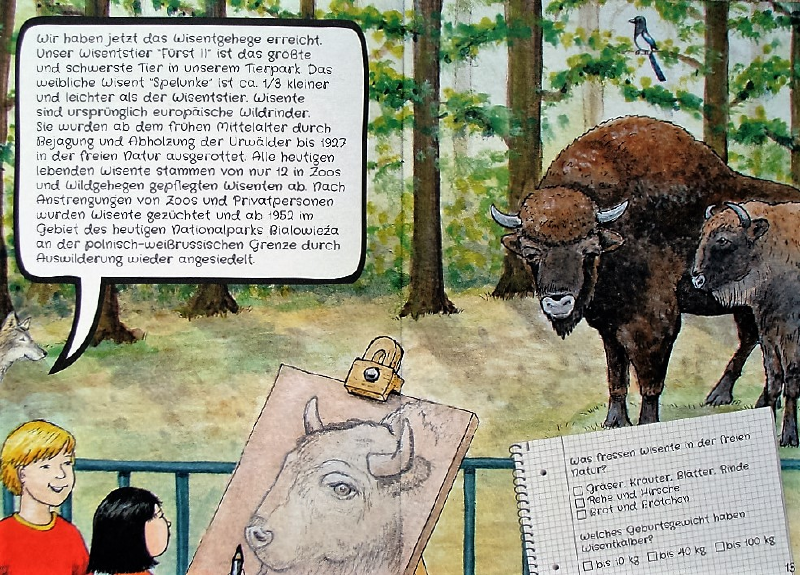 Wir haben jetzt das Wisentgehege erreicht.
Unser Wisentstier "Fürst II" ist das größte
und schwerste Tier in unserem Tierpark. Das
weibliche Wisent "Spelunke" ist ca. 1/3 kleiner
und leichter als der Wisentstier. Wisente
sind ursprünglich europäische Wildrinder.
Sie wurden ab dem frühen Mittelalter durch
Bejagung und Abholzung der Urwälder bis 1927
in der freien Natur ausgerottet. Alle heutigen
lebenden Wisente stammen von nur 12 in Zoos
und Wildgehegen gepflegten Wisenten ab. Nach
Anstrengungen von Zoos und Privatpersonen
wurden Wisente gezüchtet und ab 1952 im
Gebiet des heutigen Nationalparks Bialowieża
an der polnisch-weißrussischen Grenze durch
Auswilderung wieder angesiedelt.
Was fressen Wisente in der freien
Natur?
Gräser, Kräuter, Blätter, Rinde
Rehe und Hirsche
Brot und Brötchen
Welches Geburtsgewicht haben
Wisentkälber?
bis 10 kg bis 40 kg bis 100 kg
15